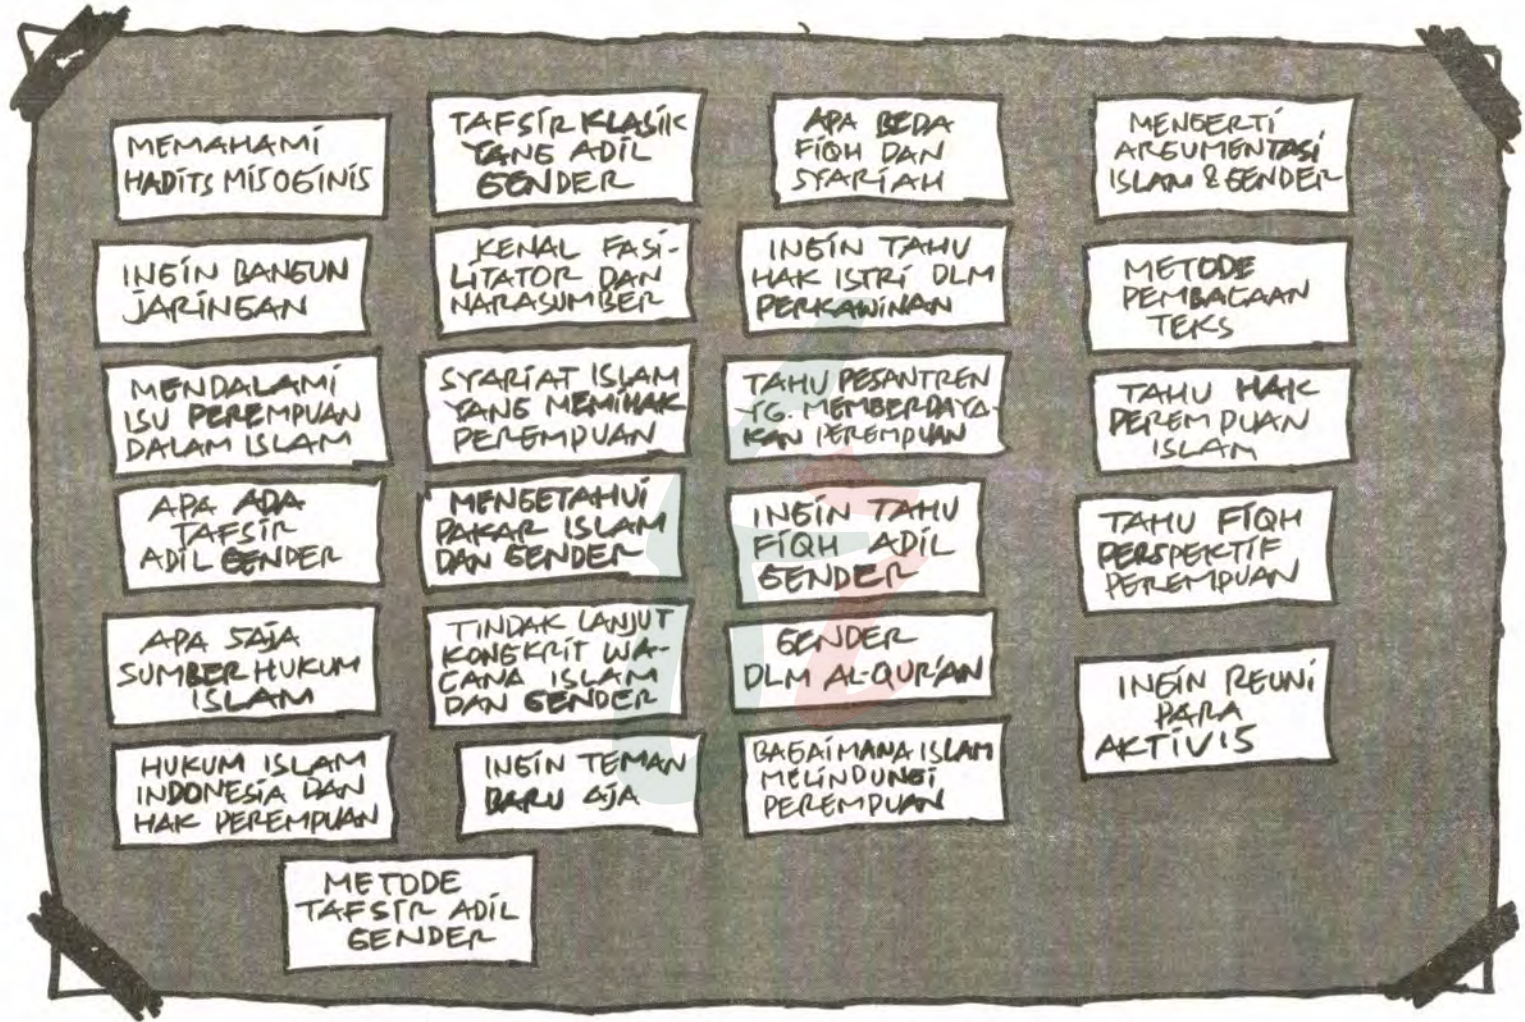 MEMAHAMI
HADITS MISOGINIS
INGIN BANGUN
JARINGAN
MENDALAMI
ISU PEREMPUAN
DALAM ISLAM
APA ADA
TAFSIR
ADIL GENDER
APA SAJA
SUMBER HUKUM
ISLAM
HUKUM ISLAM
INDONESIA DAN
HAK PEREMPUAN
METODE
TAFSIR ADIL
GENDER
TAFSIR KLASIK
YANG ADIL
GENDER
KENAL FASI-
LITATOR DAN
NARASUMBER
SYARIAT ISLAM
YANG MEMIHAK
PEREMPUAN
MENGETAHUI
PAKAR ISLAM
DAN GENDER
TINDAK LANJUT
KONGKRIT WA-
CANA ISLAM
DAN GENDER
INGIN TEMAN
BARU AJA
APA BEDA
FIQH DAN
SYARIAH
INGIN TAHU
HAK ISTRI DLM
PERKAWINAN
TAHU PESANTREN
YG. MEMBERDAYA-
KAN PEREMPUAN
INGIN TAHU
FIQH ADIL
GENDER
GENDER
DLM AL-QUR'AN
BAGAIMANA ISLAM
MELINDUNGI
PEREMPUAN
MENGERTI
ARGUMENTASI
ISLAM & GENDER
METODE
PEMBACAAN
TEKS
TAHU HAK
PEREMPUAN
ISLAM
TAHU FIQH
PERSPEKTIF
PEREMPUAN
INGIN REUNI
PARA
AKTIVIS